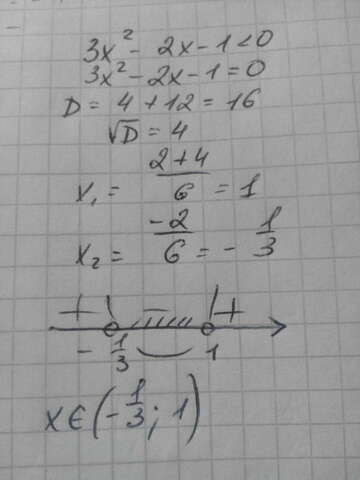 3x² - 2x - 1 < 0
3x² - 2x - 1 = 0
D = 4 + 12 = 16
√D = 4
x₁ = (2+4)/6 = 1
x₂ = -2/6 = - 1/3
+ - +
- 1/3 1
x ∈ (- 1/3 ; 1)